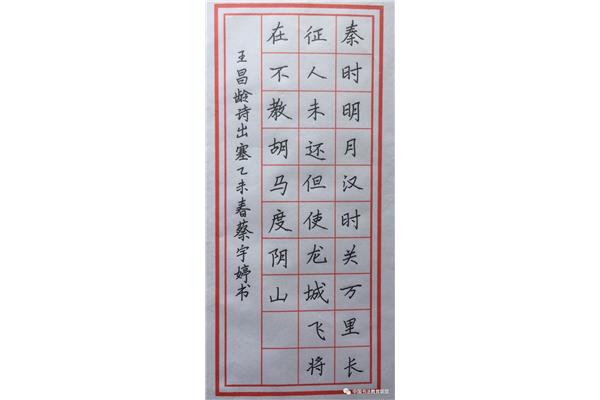 秦时明月汉时关万里长
征人未还但使龙城飞将
在不教胡马度阴山
王昌龄诗出塞乙未春蔡宇婷书
中国书法教育联盟